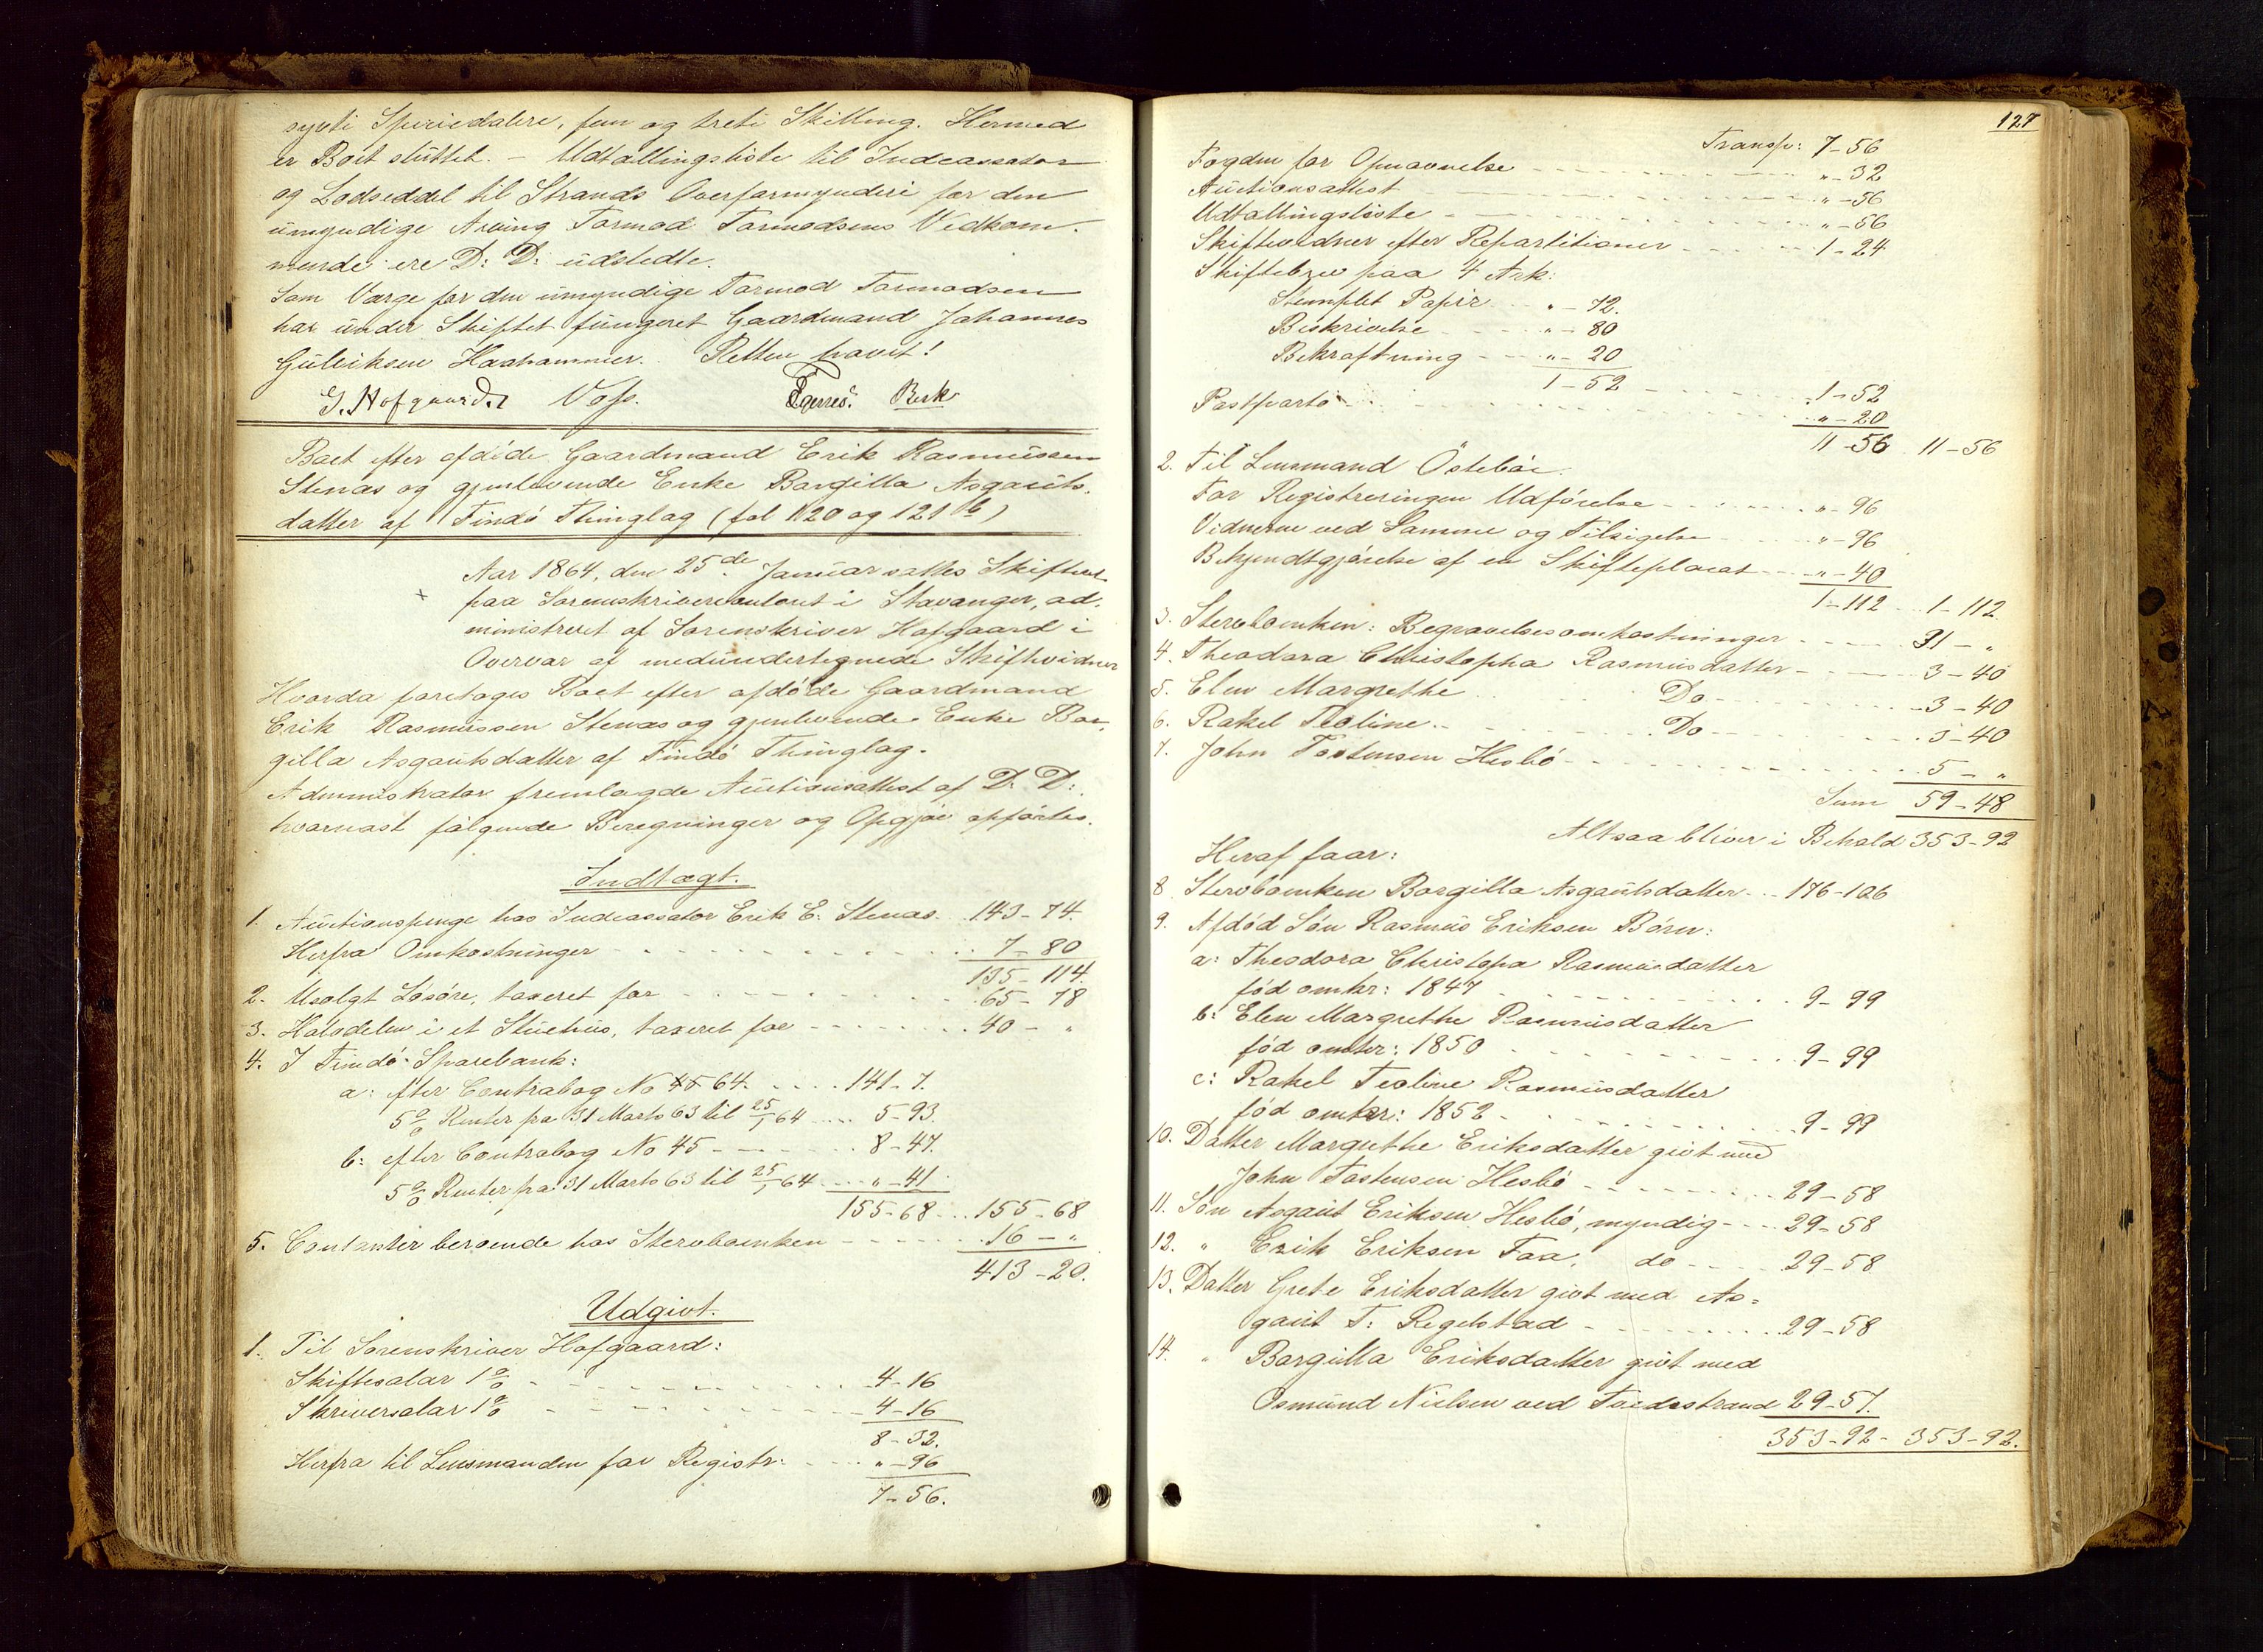 syvti Speciedalere, fem og treti Skilling. Hermed
er Boet sluttet. – Udtallingsliste til Indcassator
og Lodseddel til Strands Overformynderi for den
umyndige Arving Tormod Tormodsens Vedkom-
mende ere D: D: udstedte.
Som Værge for den umyndige Tormod Tormodsen
har under Skiftet fungeret Gaardmand Johannes
Gulliksen Haahammer. Retten hævet!
G. Hofgaard. Voss. Berk
Boet efter afdöde Gaardmand Erik Rasmussen
Stenæs og gjenlevende Enke Borgilla Asgauts-
datter af Findö Thinglag (fol 120 og 121 b)
Aar 1864, den 25de Januar sattes Skifteret
paa Sorenskrivercontoret i Stavanger, ad-
ministreret af Sorenskriver Hofgaard i
Overvær af medundertegnede Skiftevidner
Hvorda foretoges Boet efter afdöde Gaardmand
Erik Rasmussen Stenæs og gjenlevende Enke Bor-
gilla Asgautsdatter af Findö Thinglag.
Administrator fremlagde Auctionsattest af D: D:
hvornæst fölgende Beregninger og Opgjör opförtes.
Indtægt.
1. Auctionspenge hos Indcassator Erik E. Stenæs. 143-74.
Herfra Omkostninger 7-80
135-114.
2. Usolgt Lösöre, taxeret for 65-78
3. Halvdelen i et Stuehus, taxeret for 40-"
4. I Findö Sparebank:
a: efter Contrabog No 64. 141-7.
5% Renter fra 31 Marts 63 til 25/1 64 5-93.
b: efter Contrabog No 45 8-47.
5% Renter fra 31 Marts 63 til 25/1 64 "-41
155-68 155-68
5. Contanter beroende hos Stervboenken 16-"
413-20.
Udgivt.
1. Til Sorenskriver Hofgaard:
Skiftesalar 1% 4-16
Skriversalar 1% 4-16
8-32.
Herfra til Lensmanden for Registr: "-96
7-56.
127
Transp: 7-56
Fogden for Opnævnelse "-32
Auctionsattest "-56
Udtallingsliste "-56
Skiftevidner efter Repartitioner 1-24
Skiftebrev paa 4 Ark:
Stemplet Papir "-72.
Beskrivelse "-80
Bekræftning "-20
1-52 1-52
Postporto "-20
11-56 11-56
2. Til Lensmand Östeböe.
For Registreringen Udförelse "-96
Vidnerne ved Samme og Tilsigelse "-96
Bekjendtgjörelse af en Skifteplacat "-40
1-112 1-112
3. Stervboenken: Begravelsesomkostninger 31-"
4. Theodora Christopha Rasmusdatter 3-40
5. Elen Margrethe Do 3-40
6. Rakel Teoline Do 3-40
7. John Tostensen Hesbö 5-"
Sum 59-48
Altsaa bliver i Behold 353-92
Heraf faar:
8. Stervboenken Borgilla Asgautsdatter 176-106
9. Afdöd Sön Rasmus Eriksen Börn:
a: Theodora Christopa Rasmusdatter
föd omkr: 1847 9-99
b: Elen Margrethe Rasmusdatter
föd omkr: 1850 9-99
c: Rakel Teoline Rasmusdatter
föd omkr: 1852 9-99
10. Datter Margrethe Eriksdatter givt med
John Tostensen Hesbö 29-58
11. Sön Asgaut Eriksen Hesbö, myndig 29-58
12. " Erik Eriksen Faa, do 29-58
13. Datter Grete Eriksdatter givt med As-
gaut T: Regelstad 29-58
14. " Borgilla Eriksdatter givt med
Osmund Nielsen ved Tvedestrand 29-57.
353-92- 353-92.